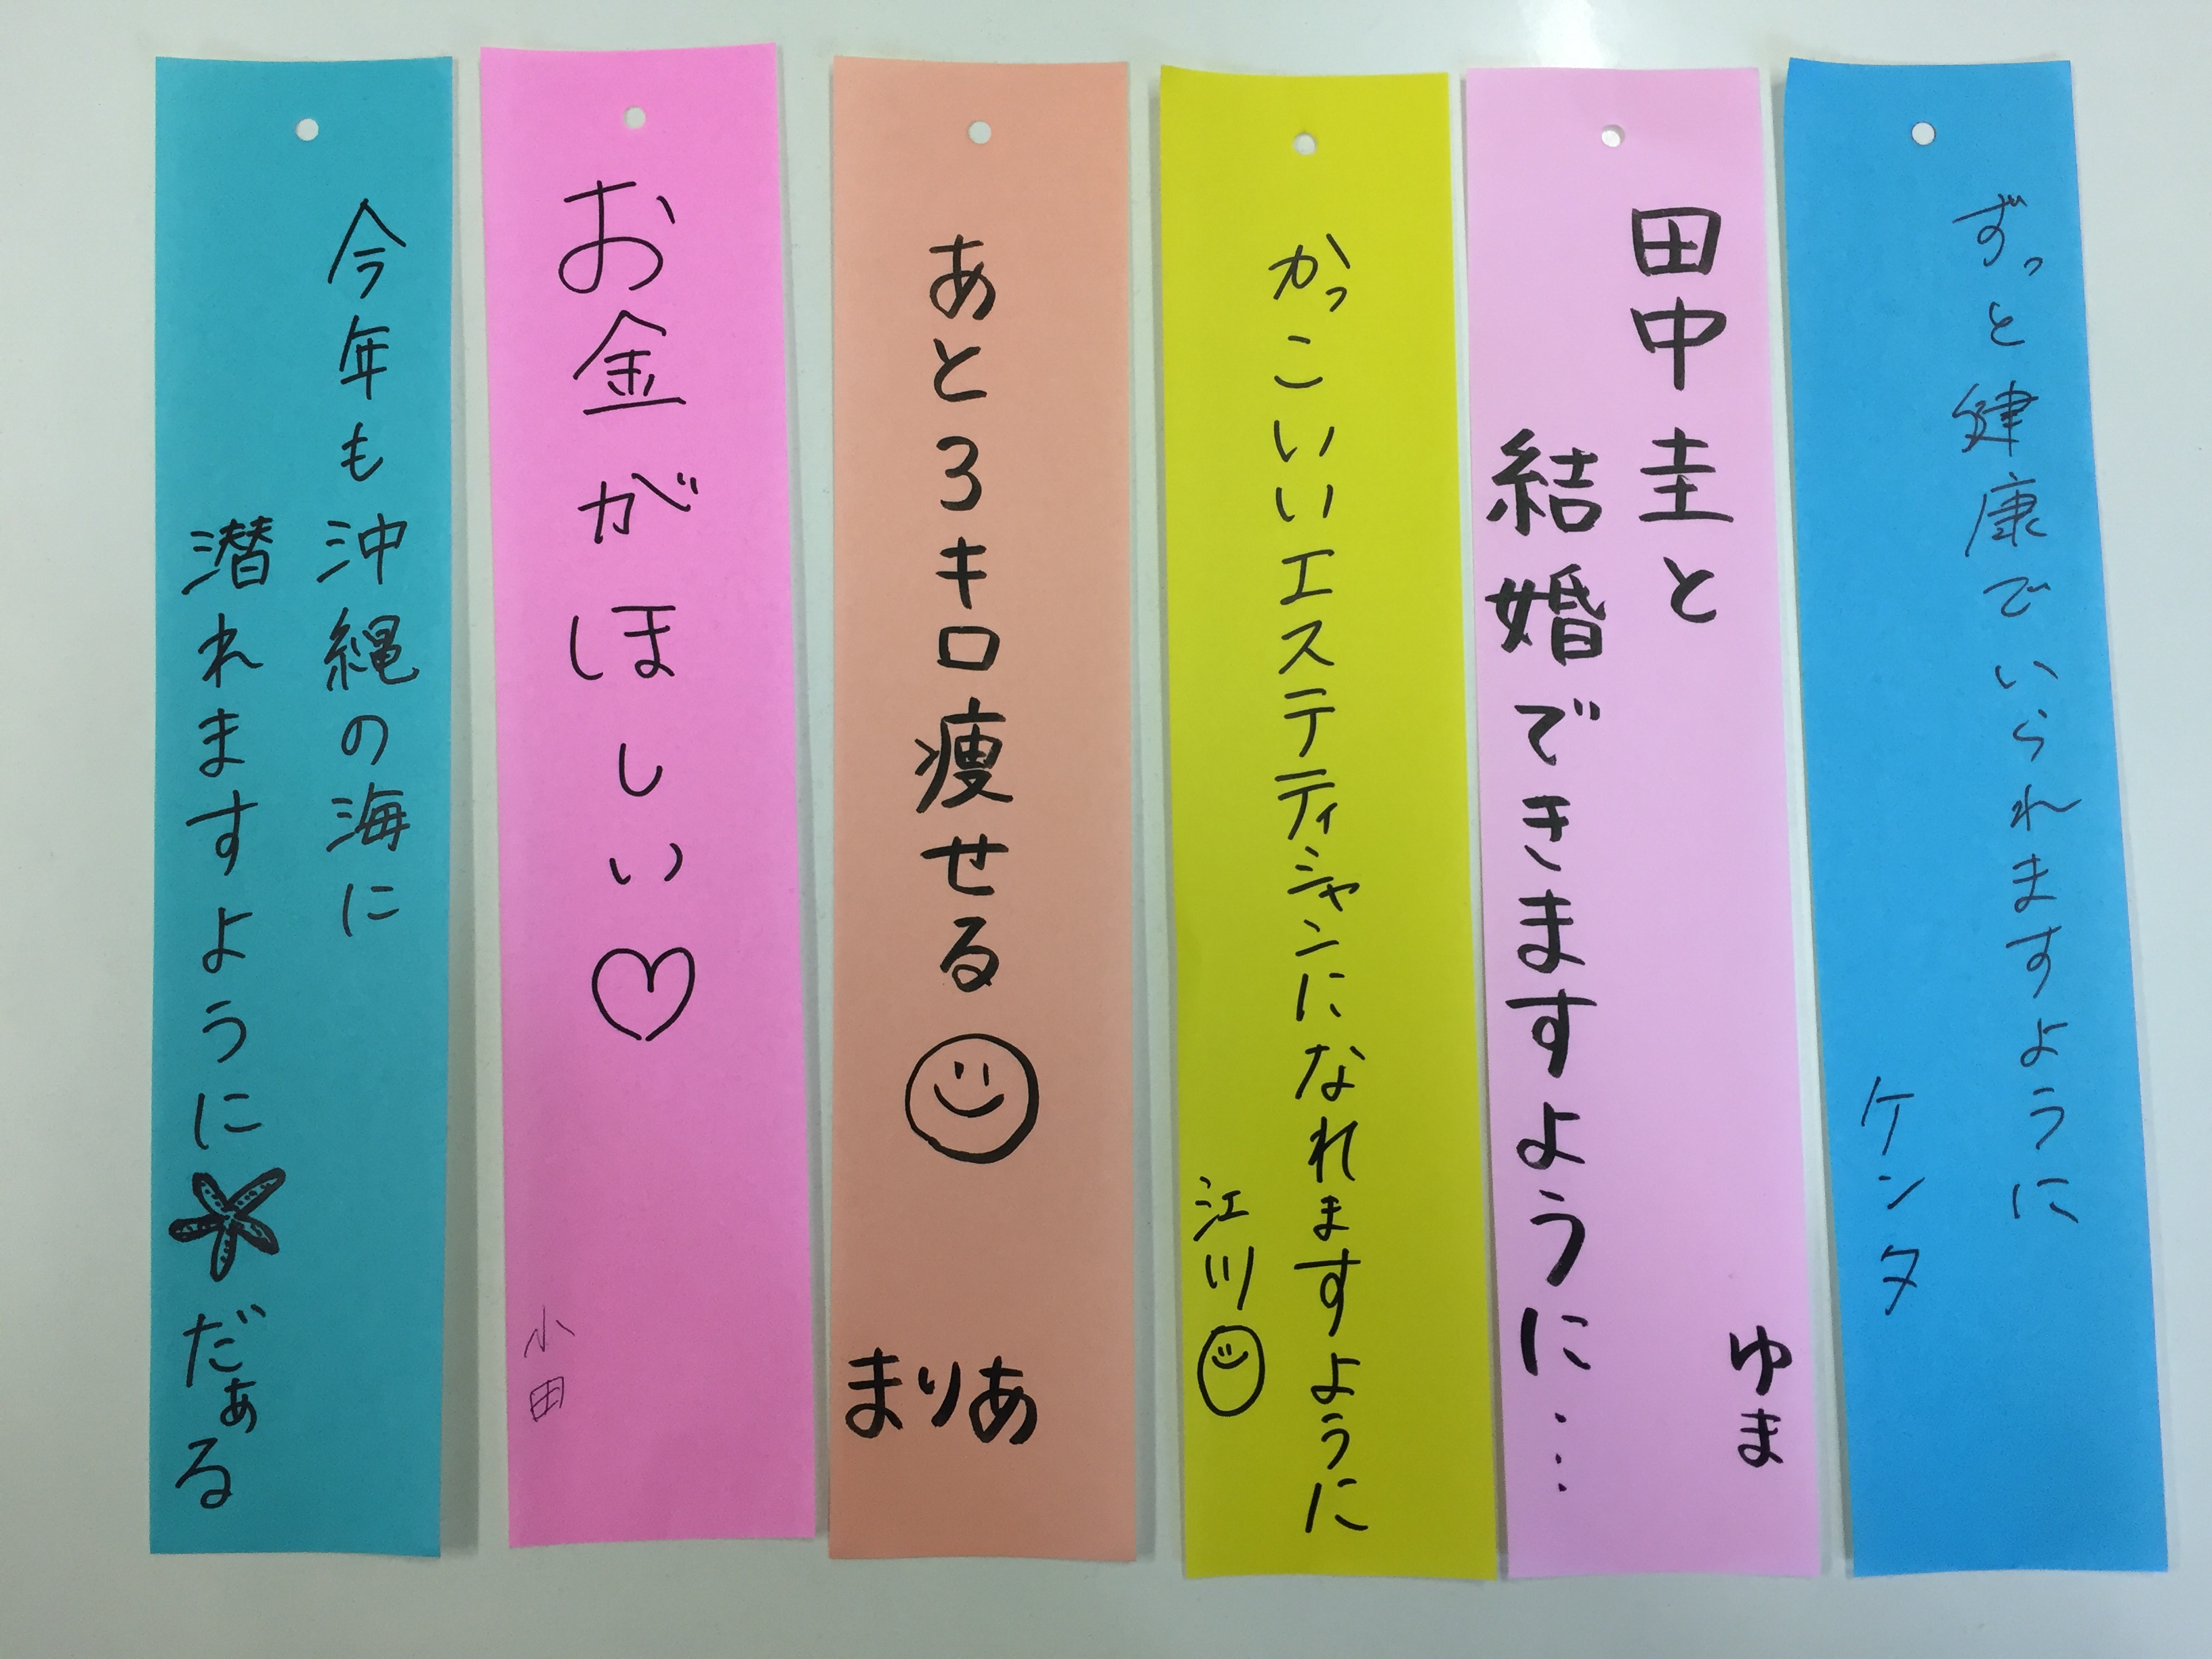 今年も沖縄の海に
潜れますように
だぁる
お金がほしい♡
小田
あと3キロ痩せる
まりあ
かっこいいエステティシャンになれますように
江川
田中圭と
結婚できますように…
ゆま
ずっと健康でいられますように
ケンタ